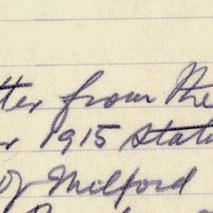 tter from the
r 1915 Stat
of Milford